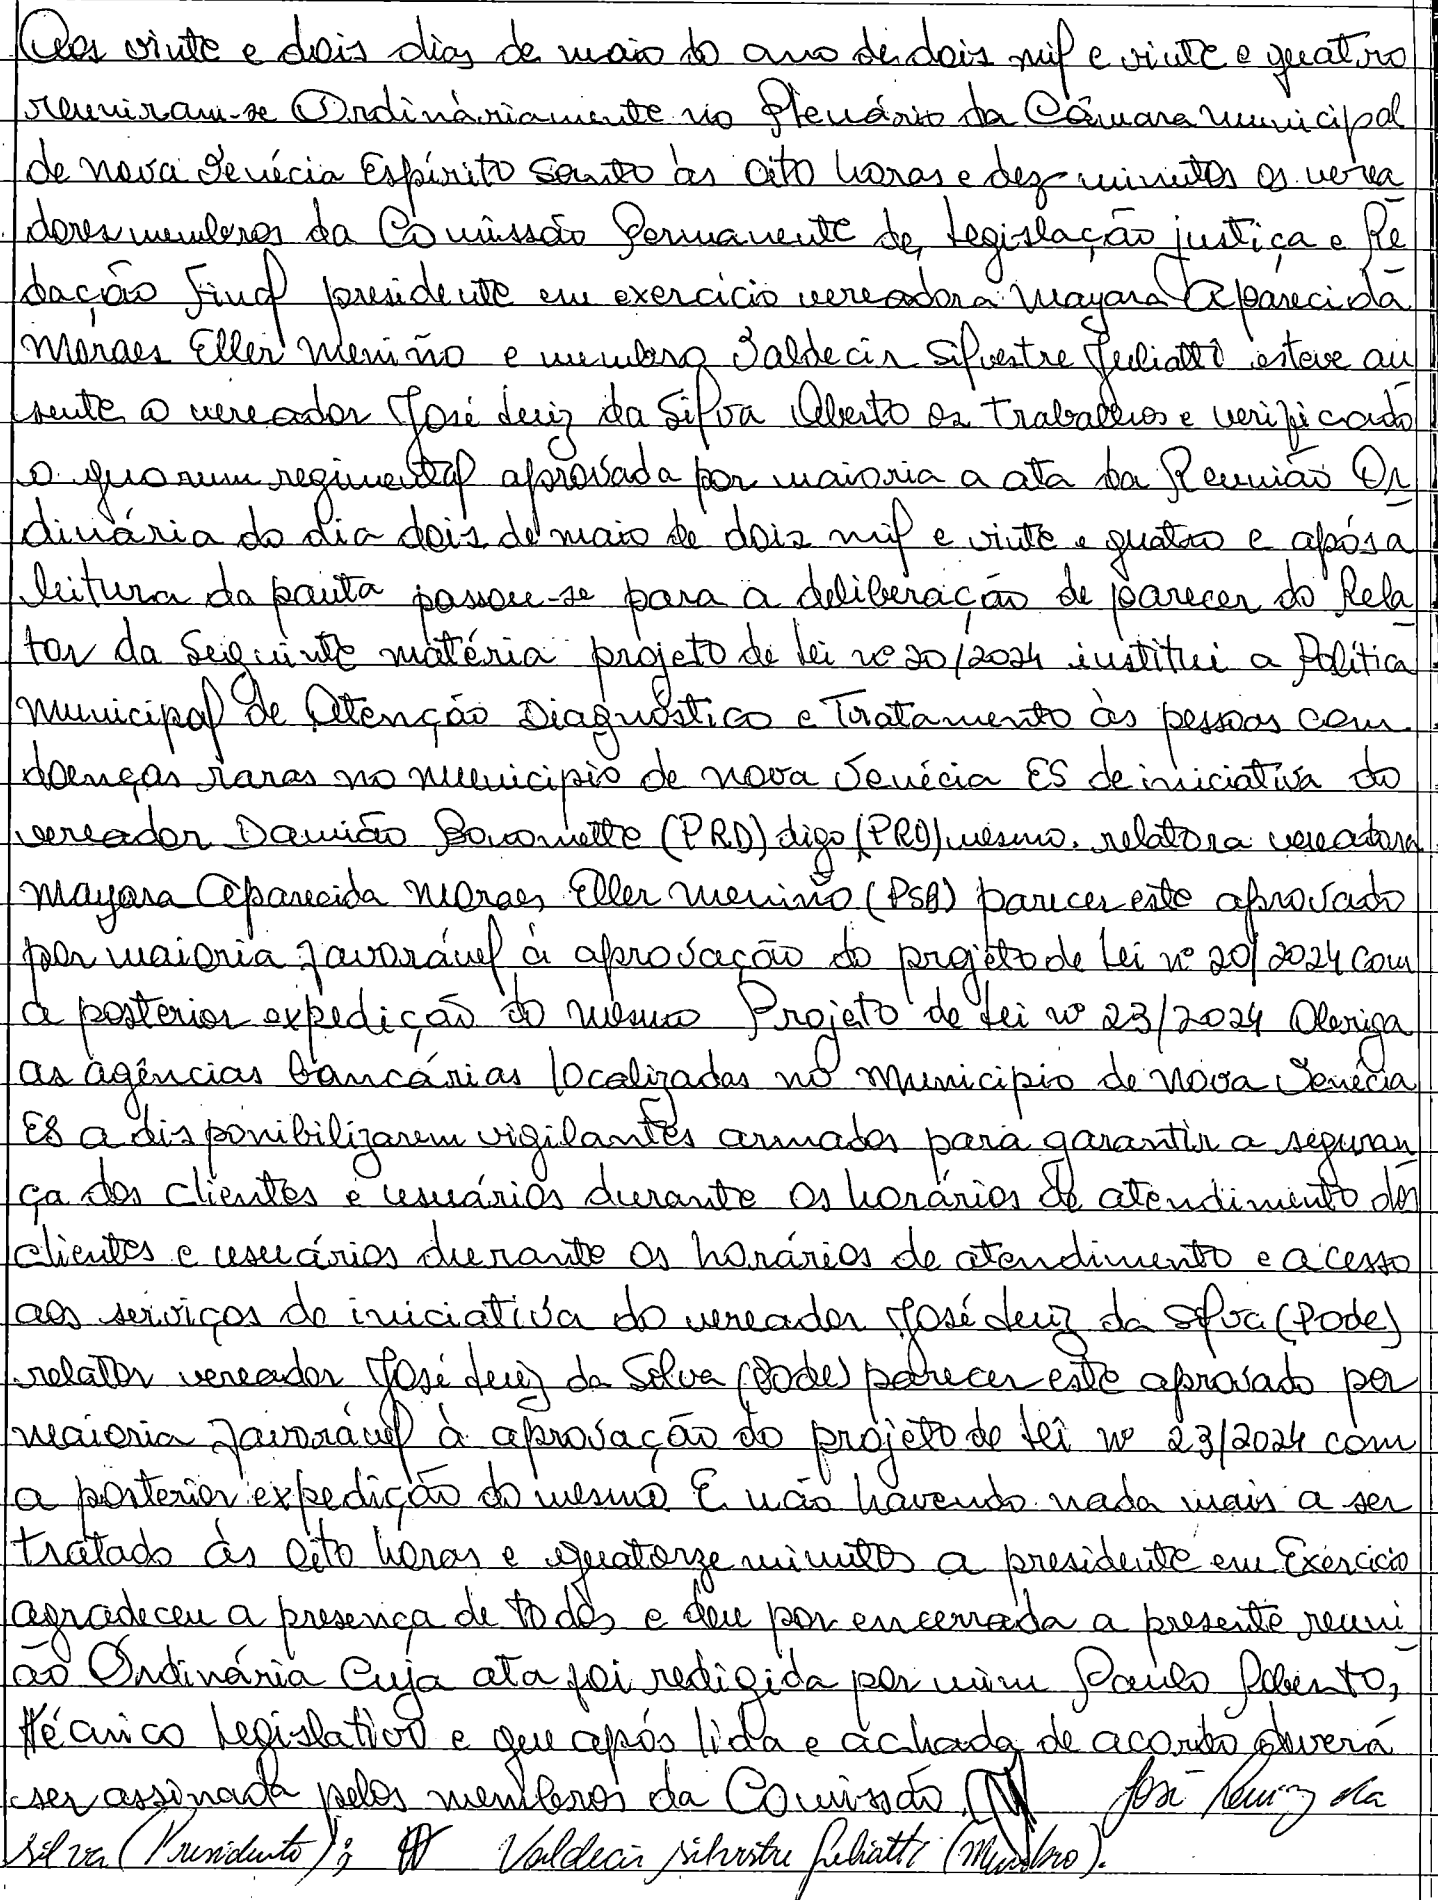 Aos vinte e dois dias de maio do ano de dois mil e vinte e quatro
reuniram-se Ordináriamente no Plenário da Câmara Municipal
de Nova Venécia Espírito Santo às oito horas e dez minutos os verea
dores membros da Comissão Permanente de Legislação justiça e Re
dação Final presidente em exercício vereadora Mayara Aparecida
Moraes Eller Meniño e membro Valdecir Silvestre Juliatti esteve au
sente o vereador José Luiz da Silva Aberto os trabalhos e verificado
o quorum regimental aprovada por maioria a ata da Reunião Or
dinária do dia dois de maio de dois mil e vinte e quatro e após a
leitura da pauta passou-se para a deliberação de parecer do Rela
tor da Seguinte matéria projeto de Lei nº 20/2024 institui a Política
Municipal de Atenção Diagnóstico e Tratamento às pessoas com
doenças raras no município de Nova Venécia ES de iniciativa do
vereador Damião Bonomette (PRD) digo (PRD) mesmo. relatora vereadora
Mayara Aparecida Moraes Eller Meniño (PSB) parecer este aprovado
por maioria favorável à aprovação do projeto de Lei nº 20/2024 com
a posterior expedição do mesmo Projeto de Lei nº 23/2024 Obriga
as agências bancárias localizadas no Município de Nova Venécia
ES a disponibilizarem vigilantes armados para garantir a seguran
ça dos clientes e usuários durante os horários de atendimento dos
clientes e usuários durante os horários de atendimento e acesso
aos serviços de iniciativa do vereador José Luiz da Silva (Pode)
relator vereador José Luiz da Silva (Pode) parecer este aprovado por
maioria favorável à aprovação do projeto de Lei nº 23/2024 com
a posterior expedição do mesmo E não havendo nada mais a ser
tratado às oito horas e quatorze minutos a presidente em Exercício
agradeceu a presença de todos e deu por encerrada a presente reuni
ão Ordinária Cuja ata foi redigida por mim Paulo Roberto,
Técnico Legislativo e que após lida e achada de acordo deverá
ser assinada pelos membros da Comissão. José Luiz da
Silva (Presidente); Valdecir Silvestre Juliatti (Membro).